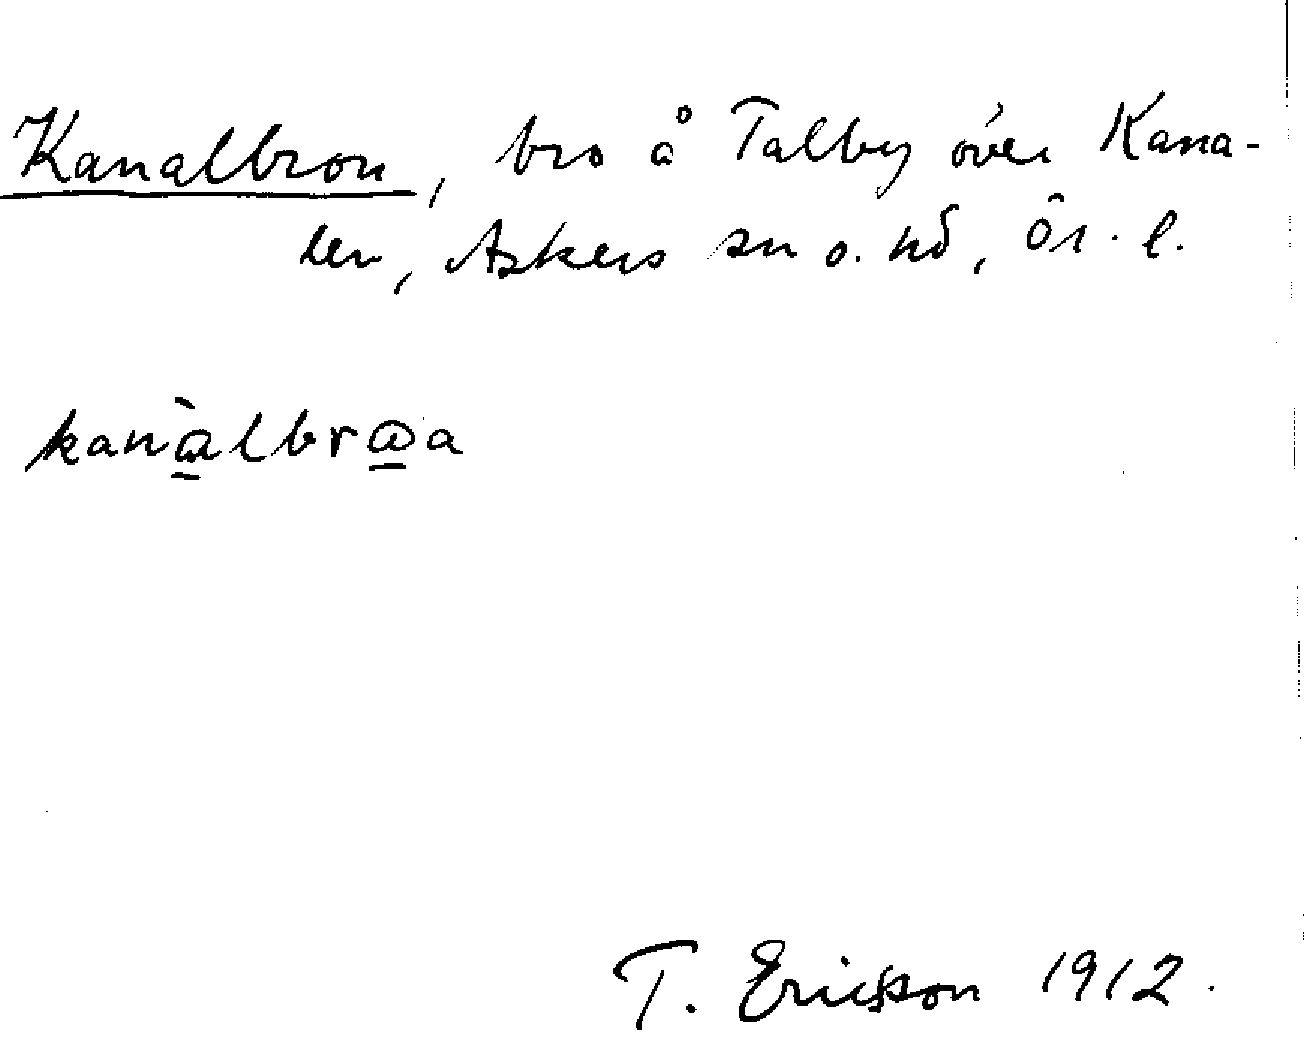 Kanalbron, bro å Talby över Kana-
len, Askers sn o. hd, Ör. l.
kanàlbrωa
T. Ericsson 1912.